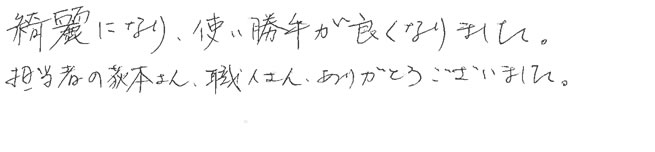 綺麗になり、使い勝手が良くなりました。
担当者の荻本さん、職人さん、ありがとうございました。